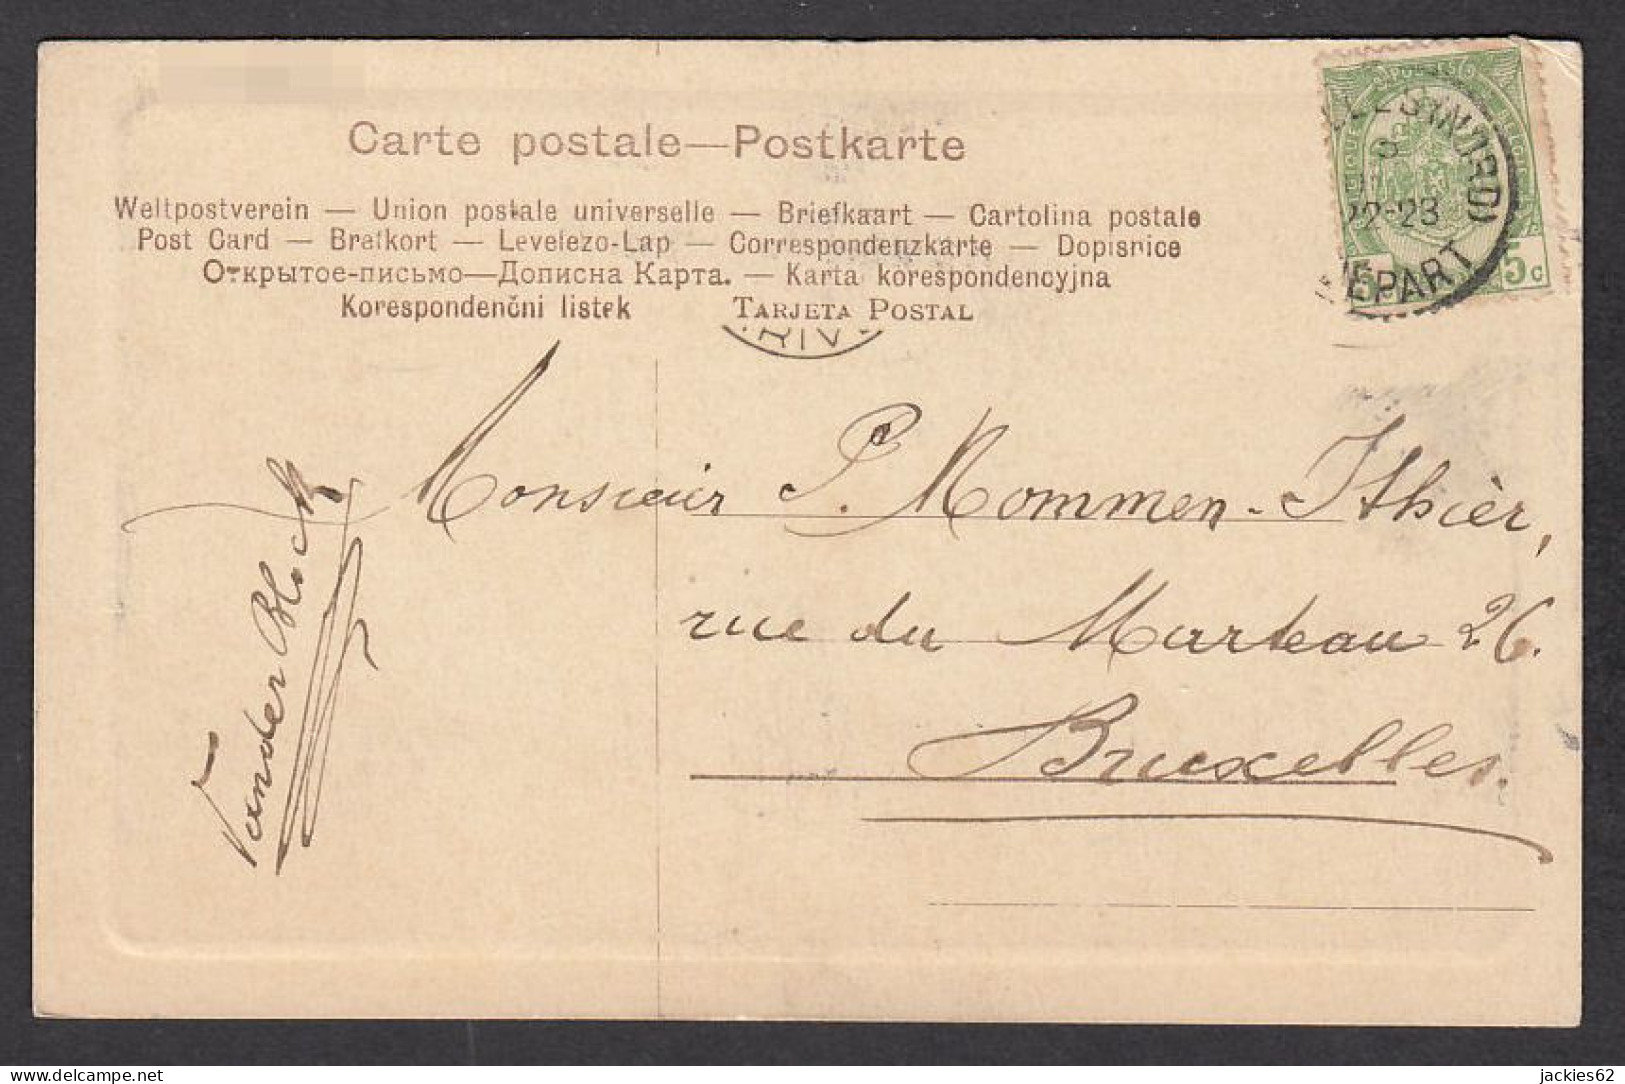 Carte postale—Postkarte
Weltpostverein — Union postale universelle — Briefkaart — Cartolina postale
Post Card — Brefkort — Levelezo-Lap — Correspondenzkarte — Dopisnice
Открытое-письмо—Дописна Карта. — Karta korespondencyjna
Korespondenčni listek TARJETA POSTAL
22-23
5c
Monsieur P. Mommen-Ithier,
rue du Marteau 26.
Bruxelles.
delcampe.net
jackies62